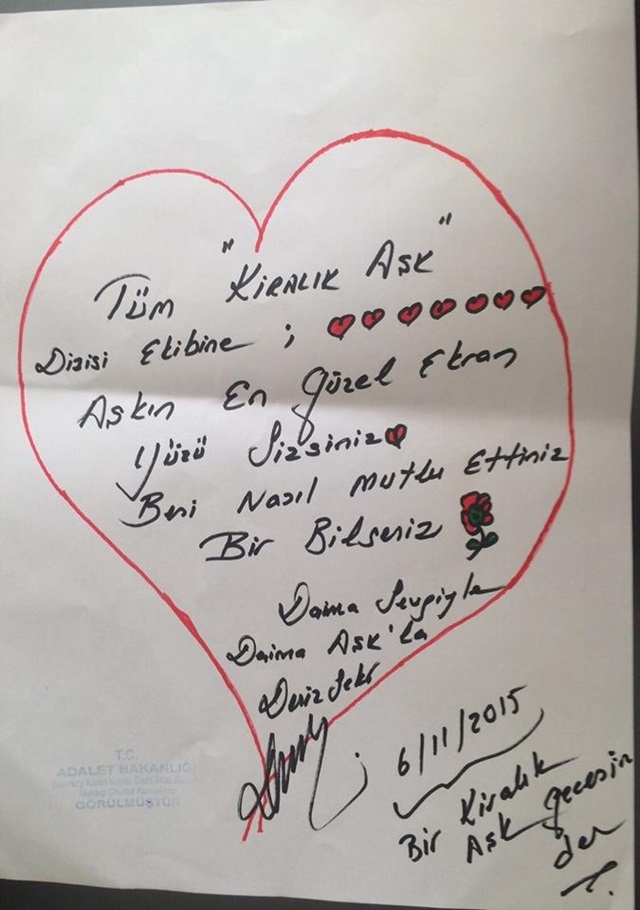 Tüm "Kiralık Aşk"
Dizisi Ekibine ;
Aşkın En Güzel Ekran
Yüzü Sizsiniz
Beni Nasıl Mutlu Ettiniz
Bir Bilseniz
Daima Sevgiyle
Daima Aşk'la
Deniz Seki
6/11/2015
Bir Kiralık
Aşk gecesin
den
T.C.
ADALET BAKANLIĞI
GÖRÜLMÜŞTÜR